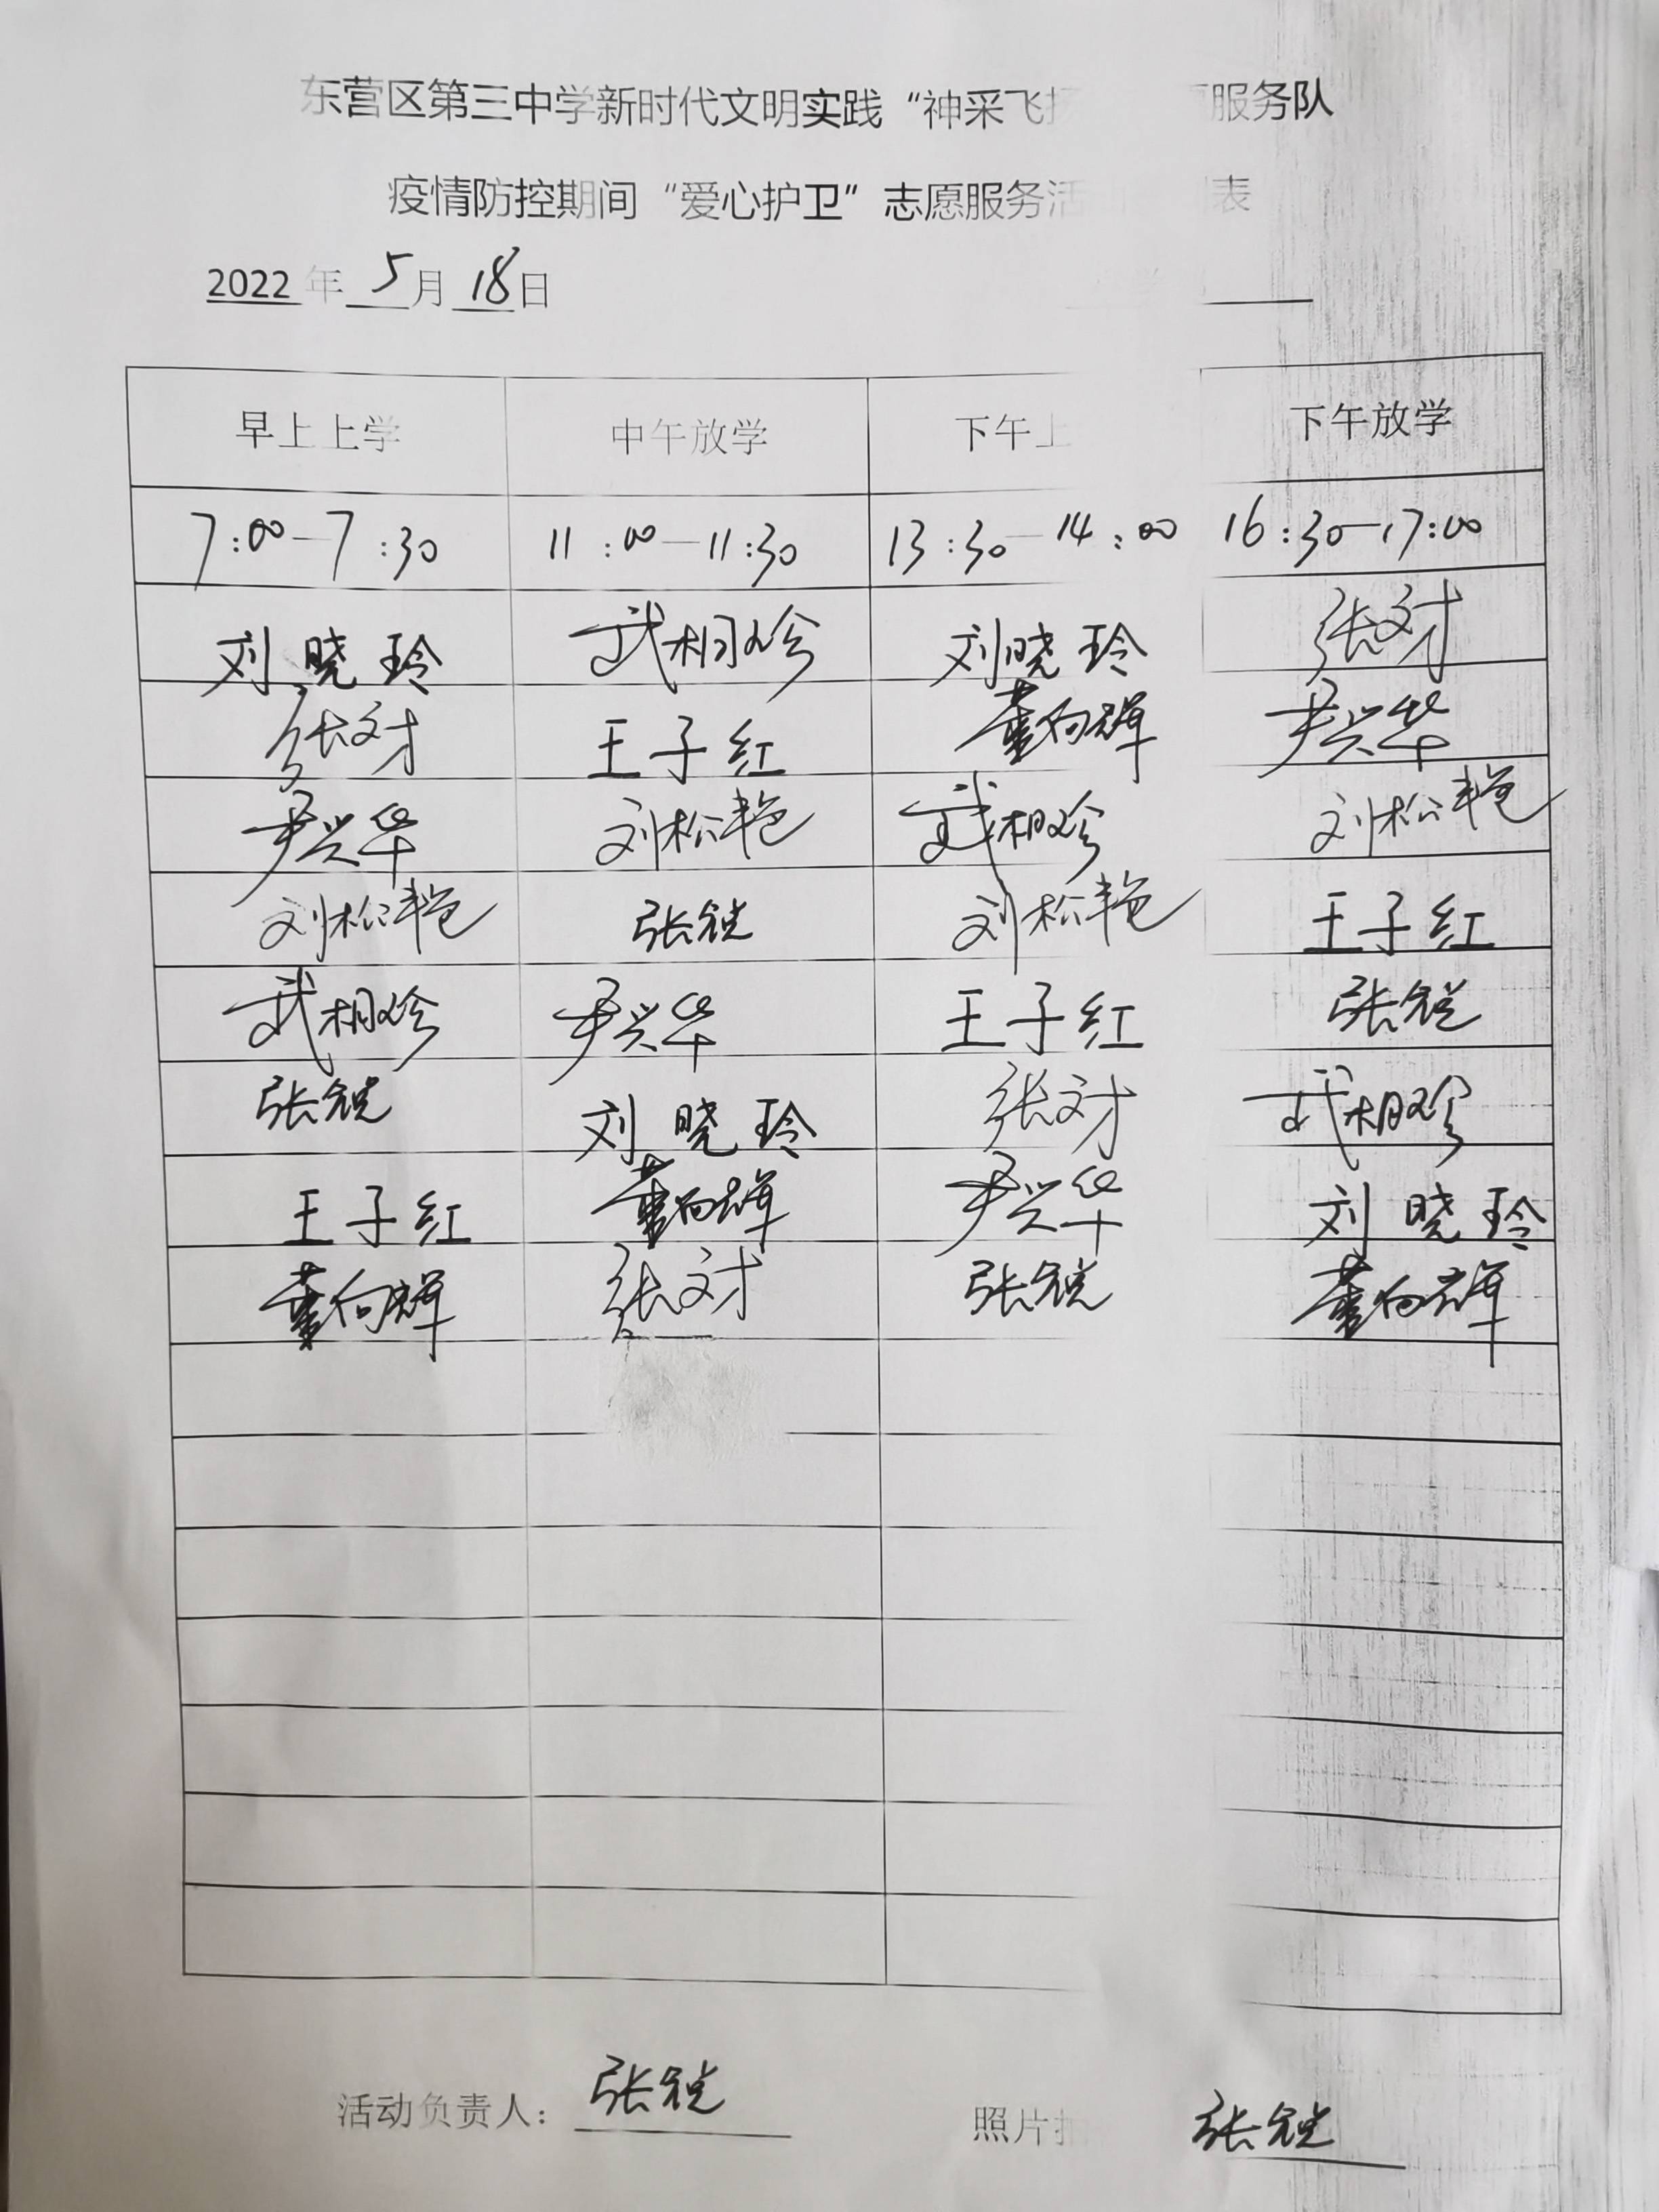 东营区第三中学新时代文明实践“神采飞扬 服务队
疫情防控期间“爱心护卫”志愿服务活 表
2022年 5月 18日
早上上学 中午放学 下午上 下午放学
7:00—7:30 11:00—11:30 13:30—14:00 16:30—17:00
刘晓玲 武相珍 刘晓玲 张文才
张文才 王子红 董向辉 尹兴华
尹兴华 刘松艳 武相珍 刘松艳
刘松艳 张锐 刘松艳 王子红
武相珍 尹兴华 王子红 张锐
张锐 刘晓玲 张文才 武相珍
王子红 董向辉 尹兴华 刘晓玲
董向辉 张文才 张锐 董向辉
活动负责人：张锐 照片 张锐